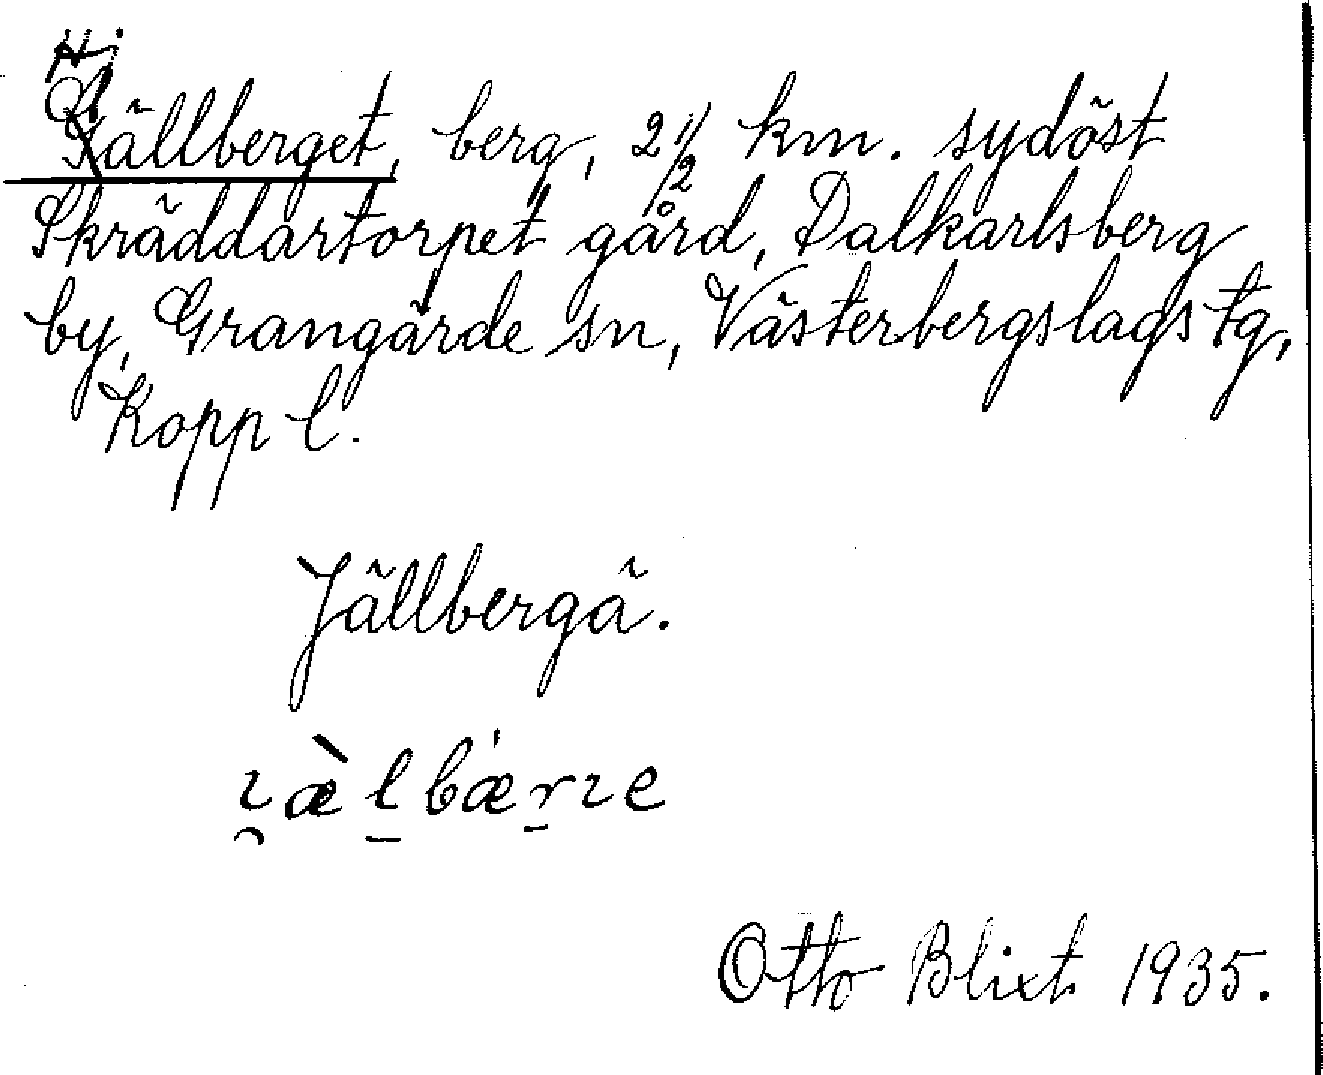 Hj
Gällberget, berg, 2 1/2 km. sydöst
Skräddartorpet gård, Dalkarlsberg
by, Grangärde sn, Västerbergslags tg,
Kopp l.
Jällbergä.
Otto Blixt 1935.